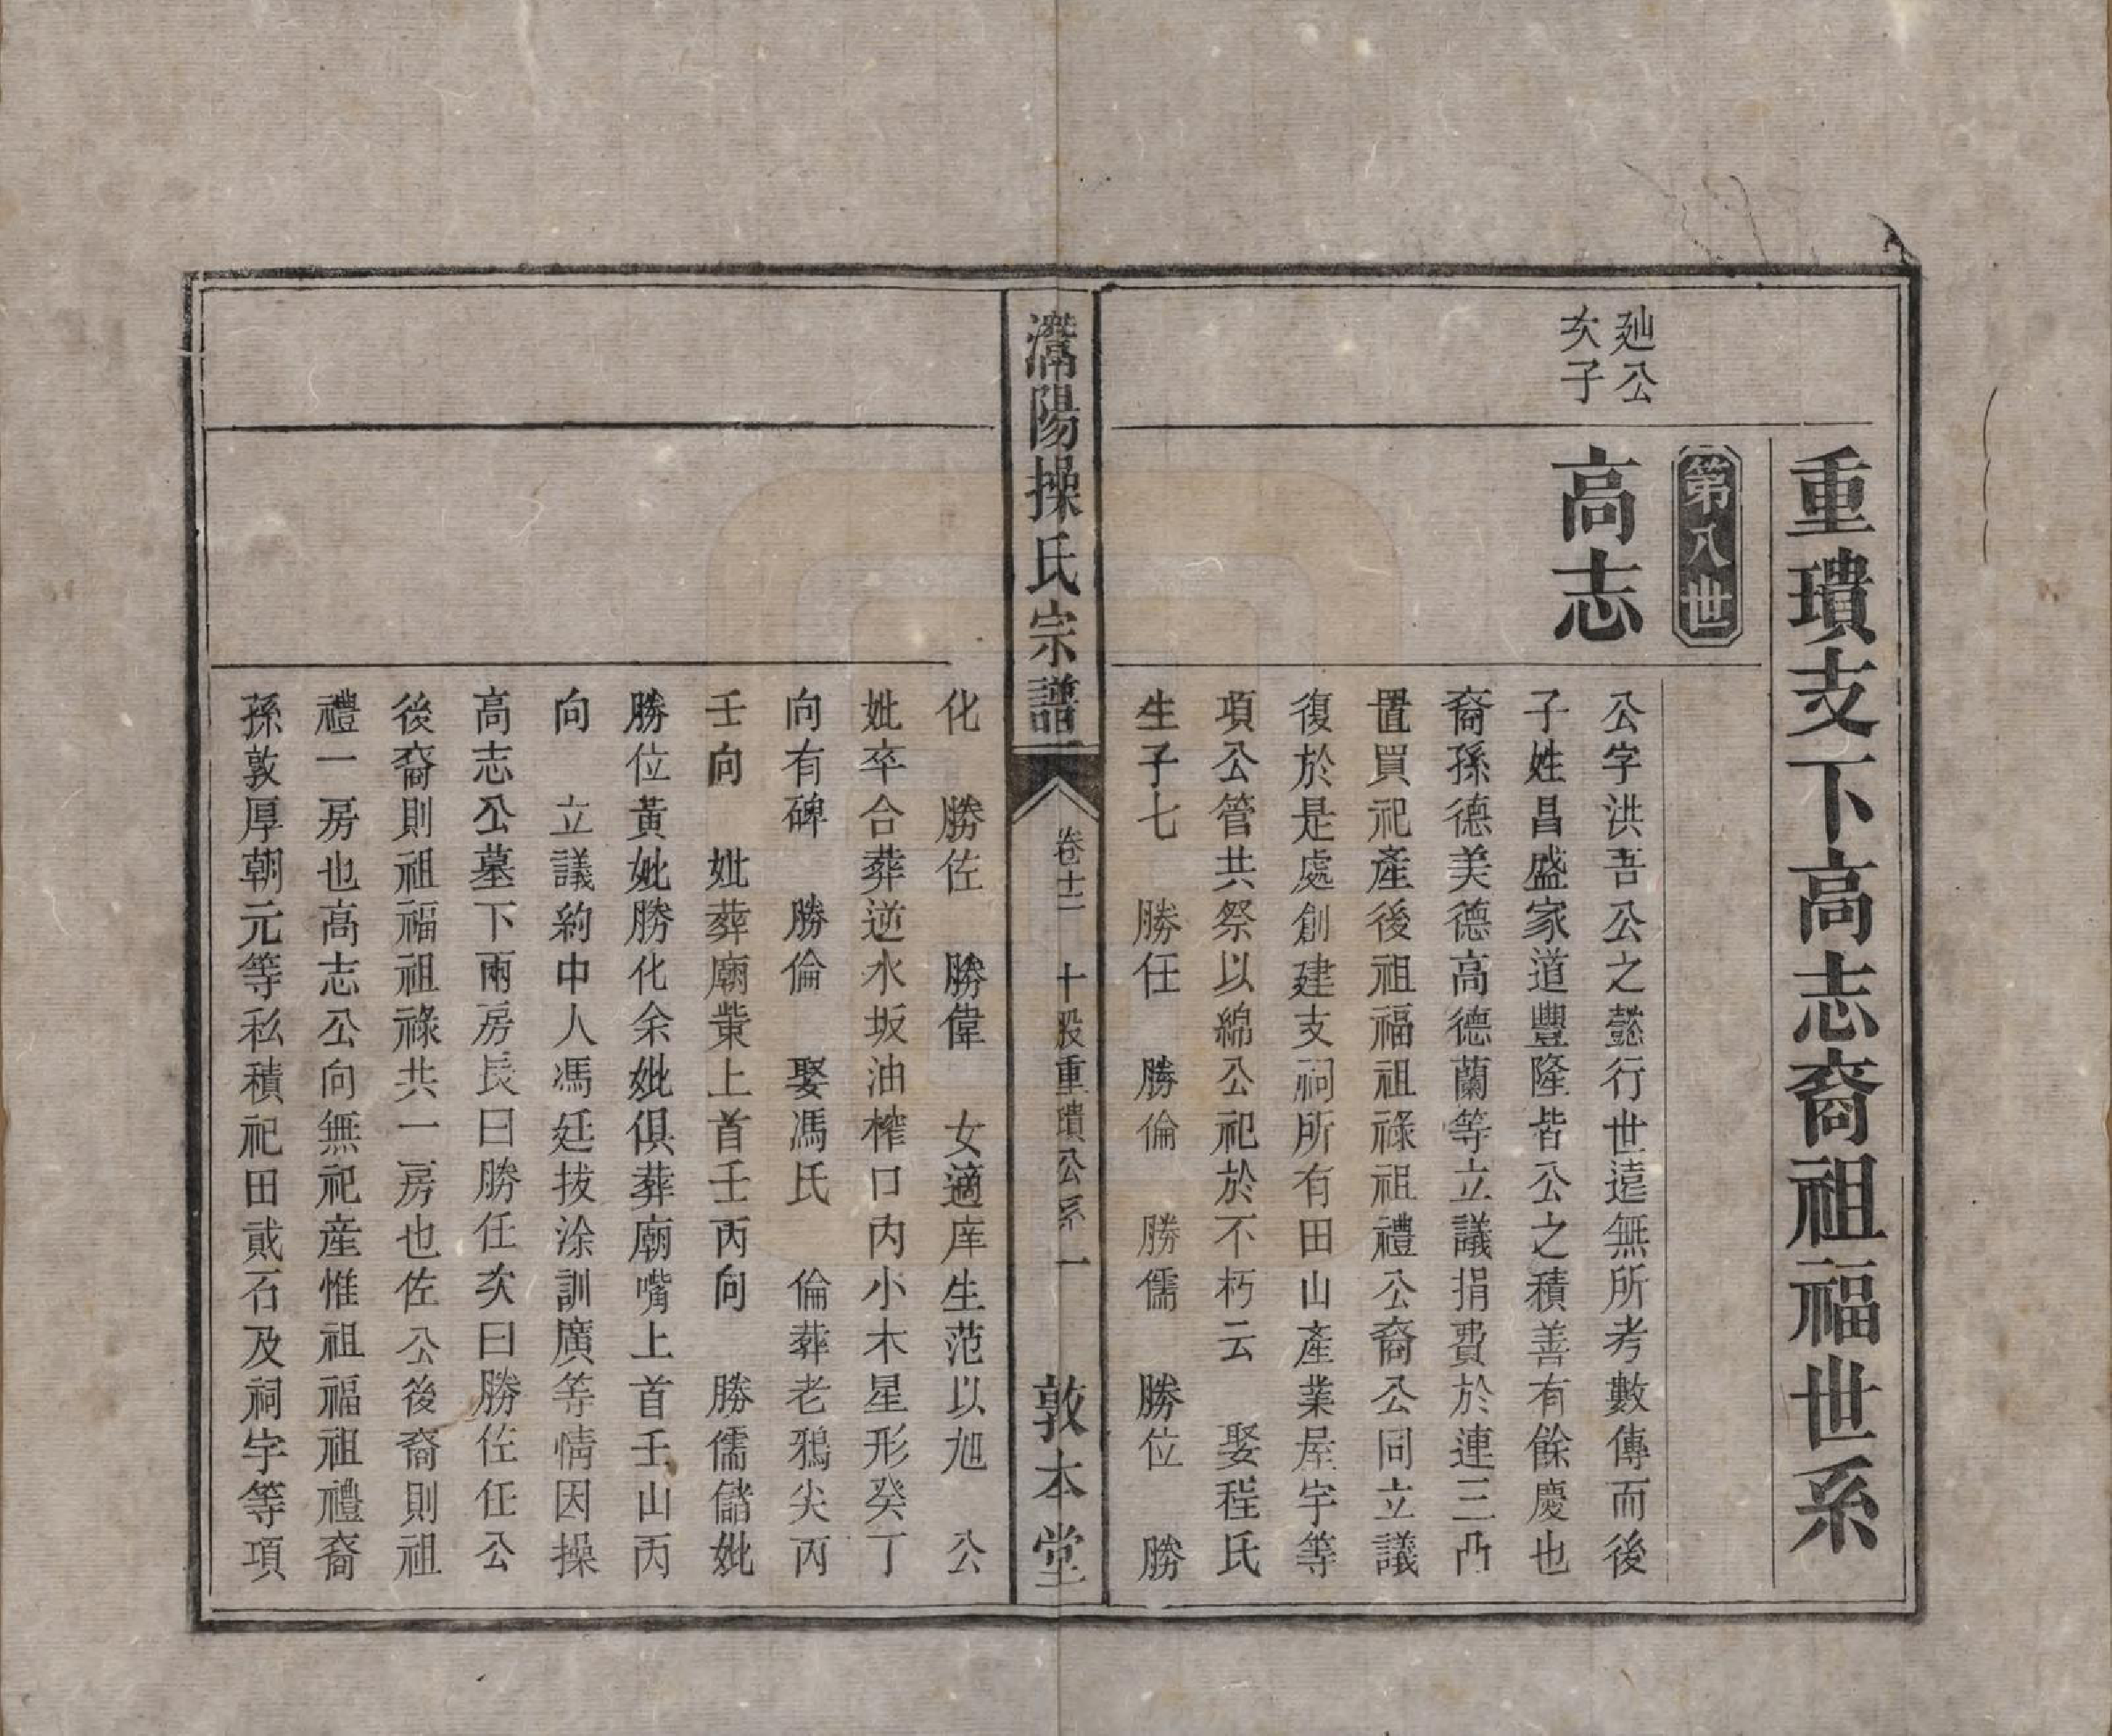 重璝支下高志裔祖福世系
第八世
廵公
次子
高志
公字洪吾公之懿行世遠無所考數傳而後
子姓昌盛家道豐隆皆公之積善有餘慶也
裔孫德美德高德蘭等立議捐費於連三凸
置買祀產後祖福祖祿祖禮公裔公同立議
復於是處創建支祠所有田山產業屋宇等
項公管共祭以綿公祀於不朽云 娶程氏
生子七 勝任 勝倫 勝儒 勝位 勝
灊陽操氏宗譜
卷十二 十股重璝公系一
敦本堂
化 勝佐 勝偉 女適庠生范以旭 公
妣卒合葬逆水坂油榨口内小木星形癸丁
向有碑 勝倫 娶馮氏 倫葬老鴉尖丙
壬向 妣葬廟業上首壬丙向 勝儒儲妣
勝位黃妣勝化余妣俱葬廟嘴上首壬山丙
向 立議約中人馮廷拔涂訓廣等情因操
高志公墓下兩房長曰勝任次曰勝佐任公
後裔則祖福祖祿共一房也佐公後裔則祖
禮一房也高志公向無祀産惟祖福祖禮裔
孫敦厚朝元等私積祀田貳石及祠宇等項